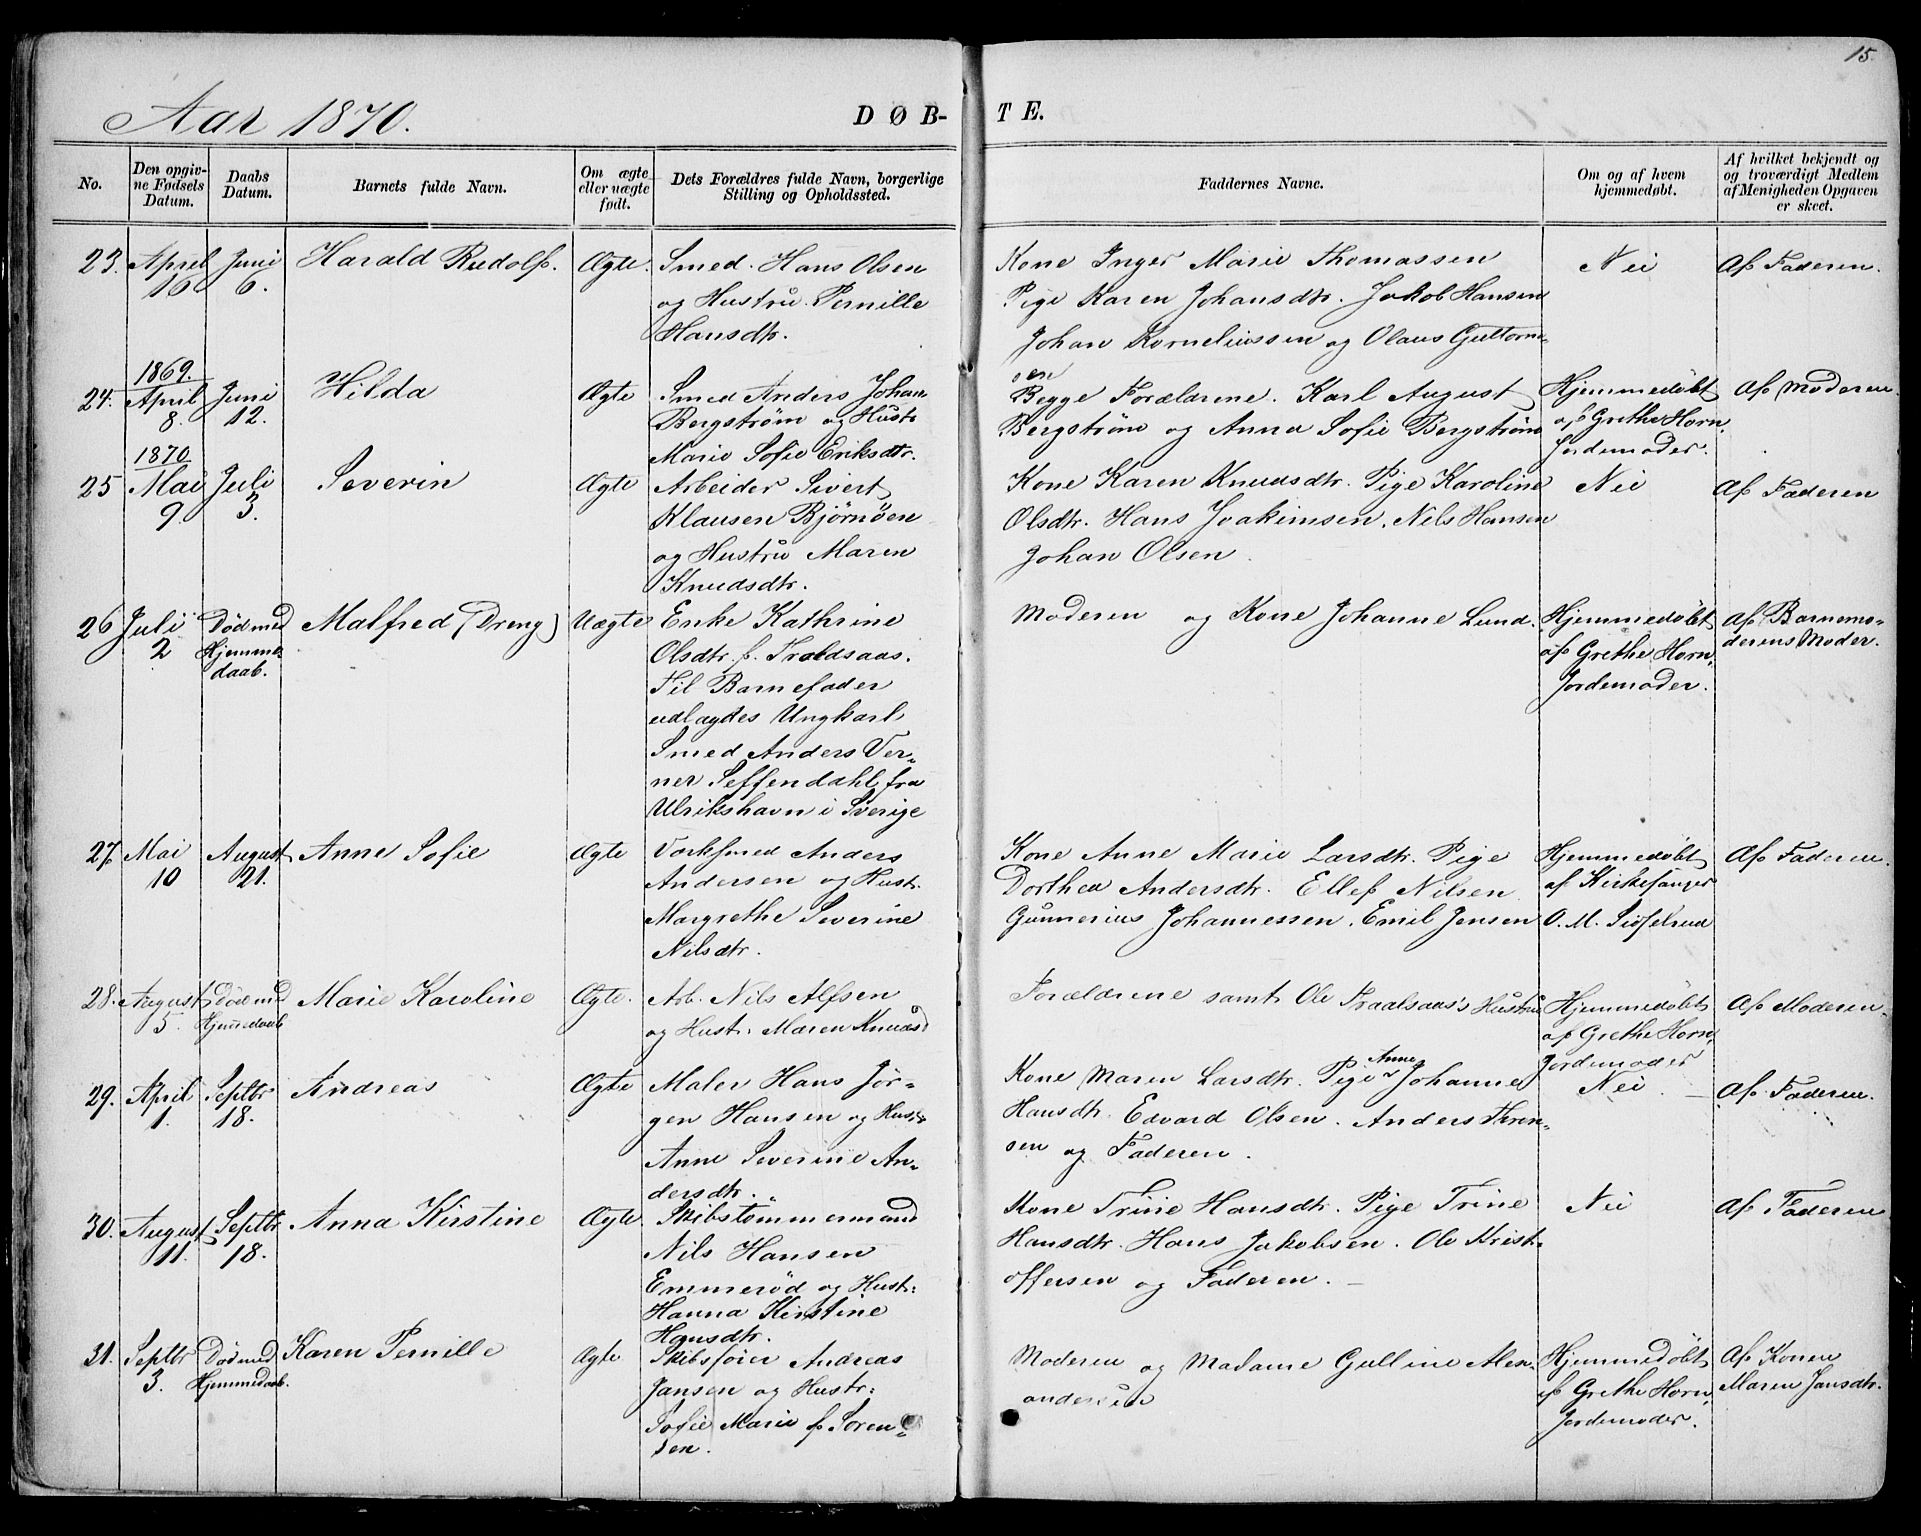 15.
Aar 1870.
DØB-
TE.
No.
Den opgiv-
ne Fødsels
Datum.
Daabs
Datum.
Barnets fulde Navn.
Om ægte
eller uægte
født.
Dets Forældres fulde Navn, borgerlige
Stilling og Opholdssted.
Faddernes Navne.
Om og af hvem
hjemmedøbt.
Af hvilket bekjendt og
og troværdigt Medlem
af Menigheden Opgaven
er skeet.
23.
April
16
Juni
6.
Harald Rudolf.
Ægte.
Smed. Hans Olsen
og Hustru Pernille
Hansdtr.
Kone Inger Marie Thomassen
Pige Karen Johansdtr. Jakob Hansen
Johan Korneliussen og Olaus Guttorm-
sen
Nei
Af Faderen.
24.
1869.
April
8.
Juni
12.
Hilda
Ægte
Smed Anders Johan
Bergstrøm og Hustr.
Marie Sofie Eriksdtr.
Begge Forældrene. Karl August
Bergstrøm og Anna Sofie Bergstrøm
Hjemmedøbt
af Grethe Horn,
Jordemoder.
Af Moderen.
25
1870
Mai
9.
Juli
3.
Severin
Ægte
Arbeider Sivert
Klausen Bjørnøen
og Hustru Maren
Knudsdtr.
Kone Karen Knudsdtr. Pige Karoline
Olsdtr. Hans Joakimsen. Nils Hansen
Johan Olsen.
Nei
Af Faderen
26
Juli
2
Død med
Hjemme
daab.
Malfred (Dreng)
Uægte
Enke Kathrine
Olsdtr. f. Traldsaas.
Til Barnefader
udlagdes Ungkarl
Smed Anders Ver-
ner Seffendahl fra
Ulrikshavn i Sverige
Moderen og Kone Johanne Lund.
Hjemmedøbt
af Grethe Horn,
Jordemoder.
Af Barnemo-
derens Moder.
27.
Mai
10
August
21.
Anne Sofie
Ægte
Værksmed Anders
Andersen og Hust.
Margrethe Severine
Nilsdtr.
Kone Anne Marie Larsdtr. Pige
Dorthea Andersdtr. Ellef Nilsen
Gunnerius Johannessen. Emil Jensen
Hjemmedøbt
af Kirkesanger
O. M. Siøfelrud
Af Faderen.
28.
August
5.
Død med
Hjemedaab
Marie Karoline
Ægte.
Arb. Nils Alfsen
og Hust: Maren Knudsd
Forældrene samt Ole Traalsaas's Hustru
Hjemmedøbt
af Grethe Horn,
Jordemoder
Af Moderen.
29.
April
1.
Septbr
18.
Andreas
Ægte
Maler Hans Jør-
gen Hansen og Hust.
Anne Severine An-
dersdtr.
Kone Maren Larsdtr. Pige Anne Johanne
Hansdtr. Edvard Olsen. Anders Thren-
sen og Faderen.
Nei
Af Faderen.
30.
August
11.
Septbr
18.
Anna Kirstine
Ægte
Skibstømmermand
Nils Hansen
Emmerød og Hust:
Hanna Kirstine
Hansdtr.
Kone Trine Hansdtr. Pige Trine
Hansdtr. Hans Jakobsen. Ole Krist-
offersen og Faderen.
Nei
Af Faderen
31.
Septbr
3.
Død med
Hjemmedaab.
Karen Pernille
Ægte
Skibsfører Andreas
Jansen og Hustr:
Sofie Marie f. Søren-
sen.
Moderen og Madame Gulline Alex-
andersen
Hjemmedøbt
af Grethe Horn,
Jordemoder.
Af Konen
Maren Jansdtr.